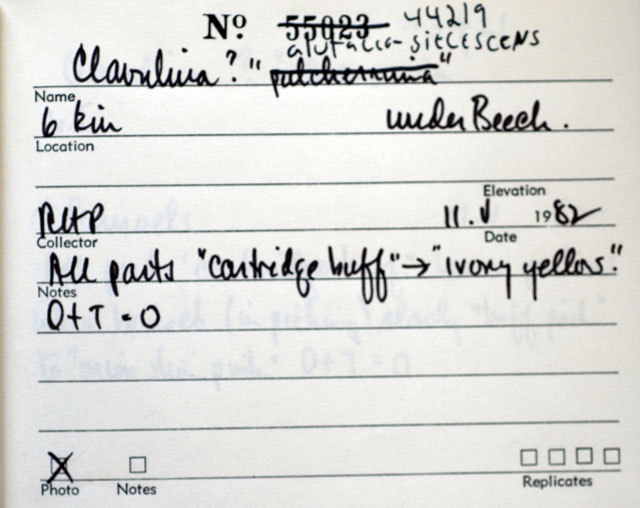 Nº 55023 44219
alutacea-siccescens
Clavulina? "pulcherrima"
Name
6 km under Beech.
Location
Elevation
RHP 11.V 1982
Collector Date
All parts "cartridge buff" → "ivory yellow".
Notes
O+T = O
Photo Notes Replicates